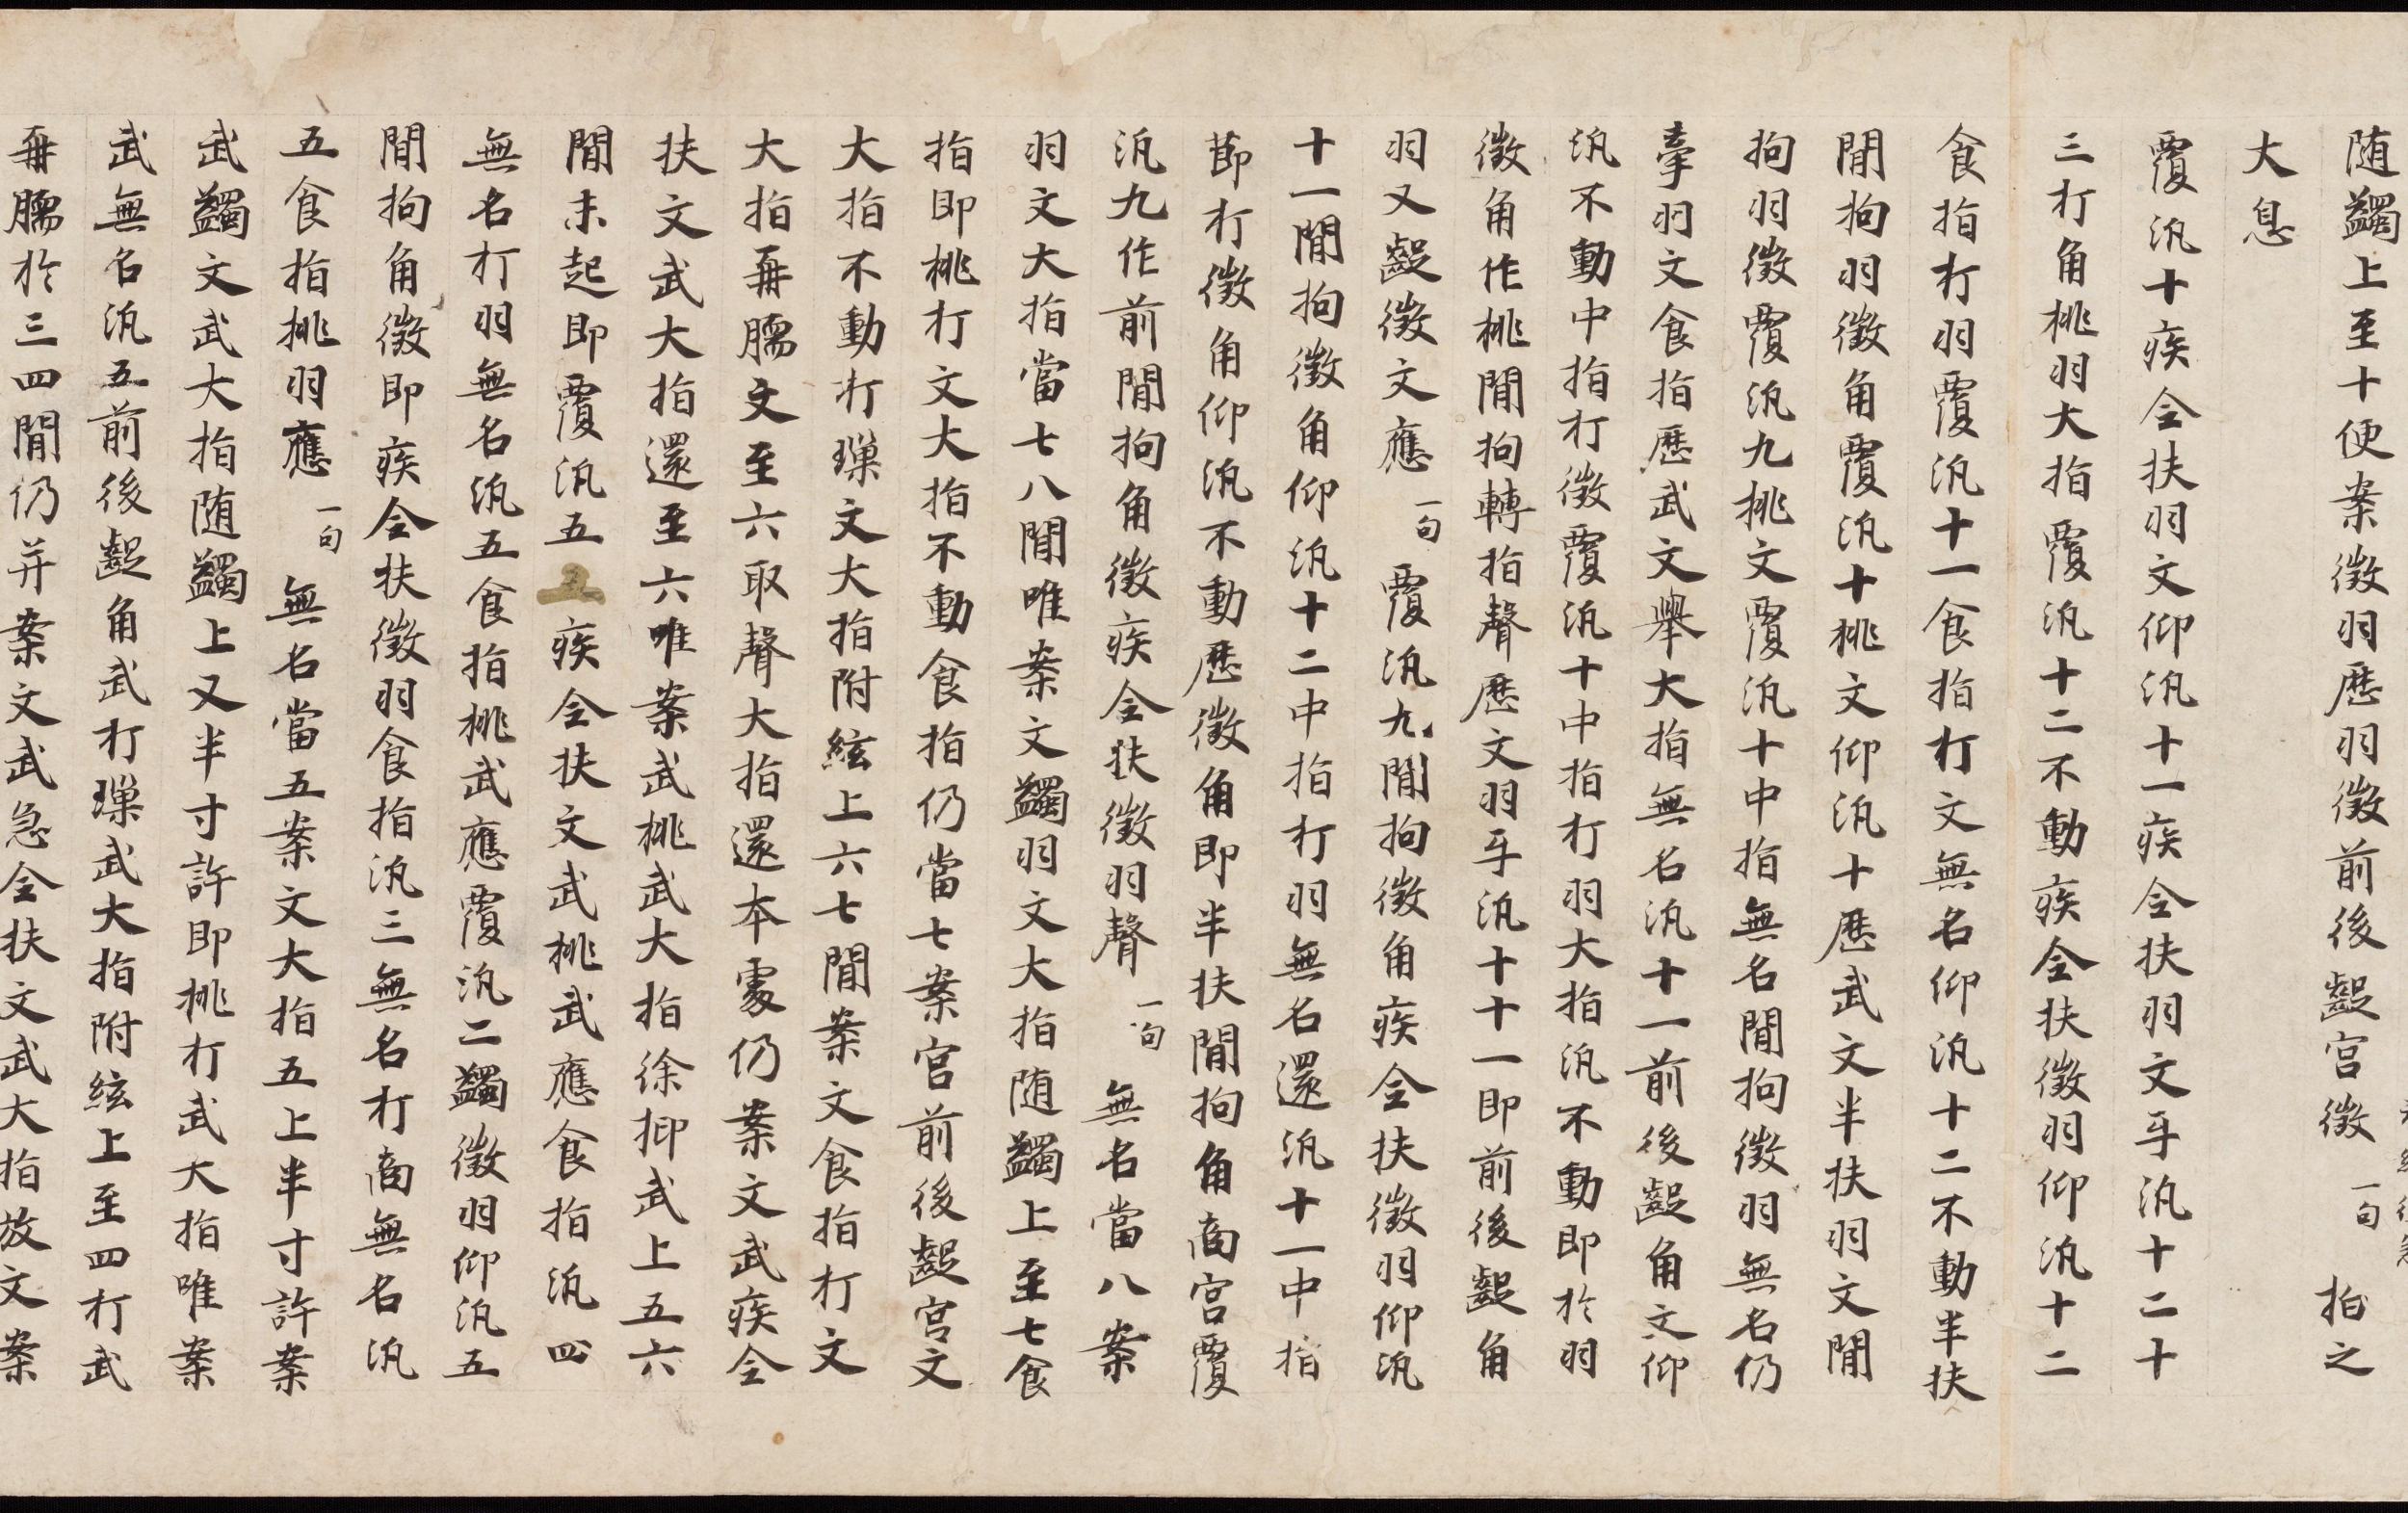 随蠲上至十便案徴羽歷羽徴前後齪宫徴一句 拍之
大息
覆汎十疾全扶羽文仰汎十一疾全扶羽文㸦汎十二十
三打角桃羽大指覆汎十二不動疾全扶徴羽仰汎十二
食指打羽覆汎十一食指打文無名仰汎十二不動半扶
閒拘羽徴角覆汎十桃文仰汎十歷武文半扶羽文閒
拘羽徴覆汎九桃文覆汎十中指無名閒拘徴羽無名仍
牽羽文食指歷武文舉大指無名汎十一前後齪角文仰
汎不動中指打徴覆汎十中指打羽大指汎不動即於羽
徴角作桃閒拘轉指聲歷文羽㸦汎十十一即前後齪角
羽又齪徴文應一句 覆汎九閒拘徴角疾全扶徴羽仰汎
十一閒拘徴角仰汎十二中指打羽無名還汎十一中指
節打徴角仰汎不動歷徴角即半扶閒拘角商宫覆
汎九作前閒拘角徴疾全扶徴羽聲一句 無名當八案
羽文大指當七八閒唯案文蠲羽文大指随蠲上至七食
指即桃打文大指不動食指仍當七案宫前後齪宫文
大指不動打璅文大指附絃上六七閒案文食指打文
大指再臑文至六取聲大指還本處仍案文武疾全
扶文武大指還至六唯案武桃武大指徐抑武上五六
閒未起即覆汎五疾全扶文武桃武應食指汎四
無名打羽無名汎五食指桃武應覆汎二蠲徴羽仰汎五
閒拘角徴即疾全扶徴羽食指汎三無名打商無名汎
五食指桃羽應一句 無名當五案文大指五上半寸許案
武蠲文武大指随蠲上又半寸許即桃打武大指唯案
武無名汎五前後齪角武打璅武大指附絃上至四打武
再臑於三四閒仍并案文武急全扶文武大指放文案